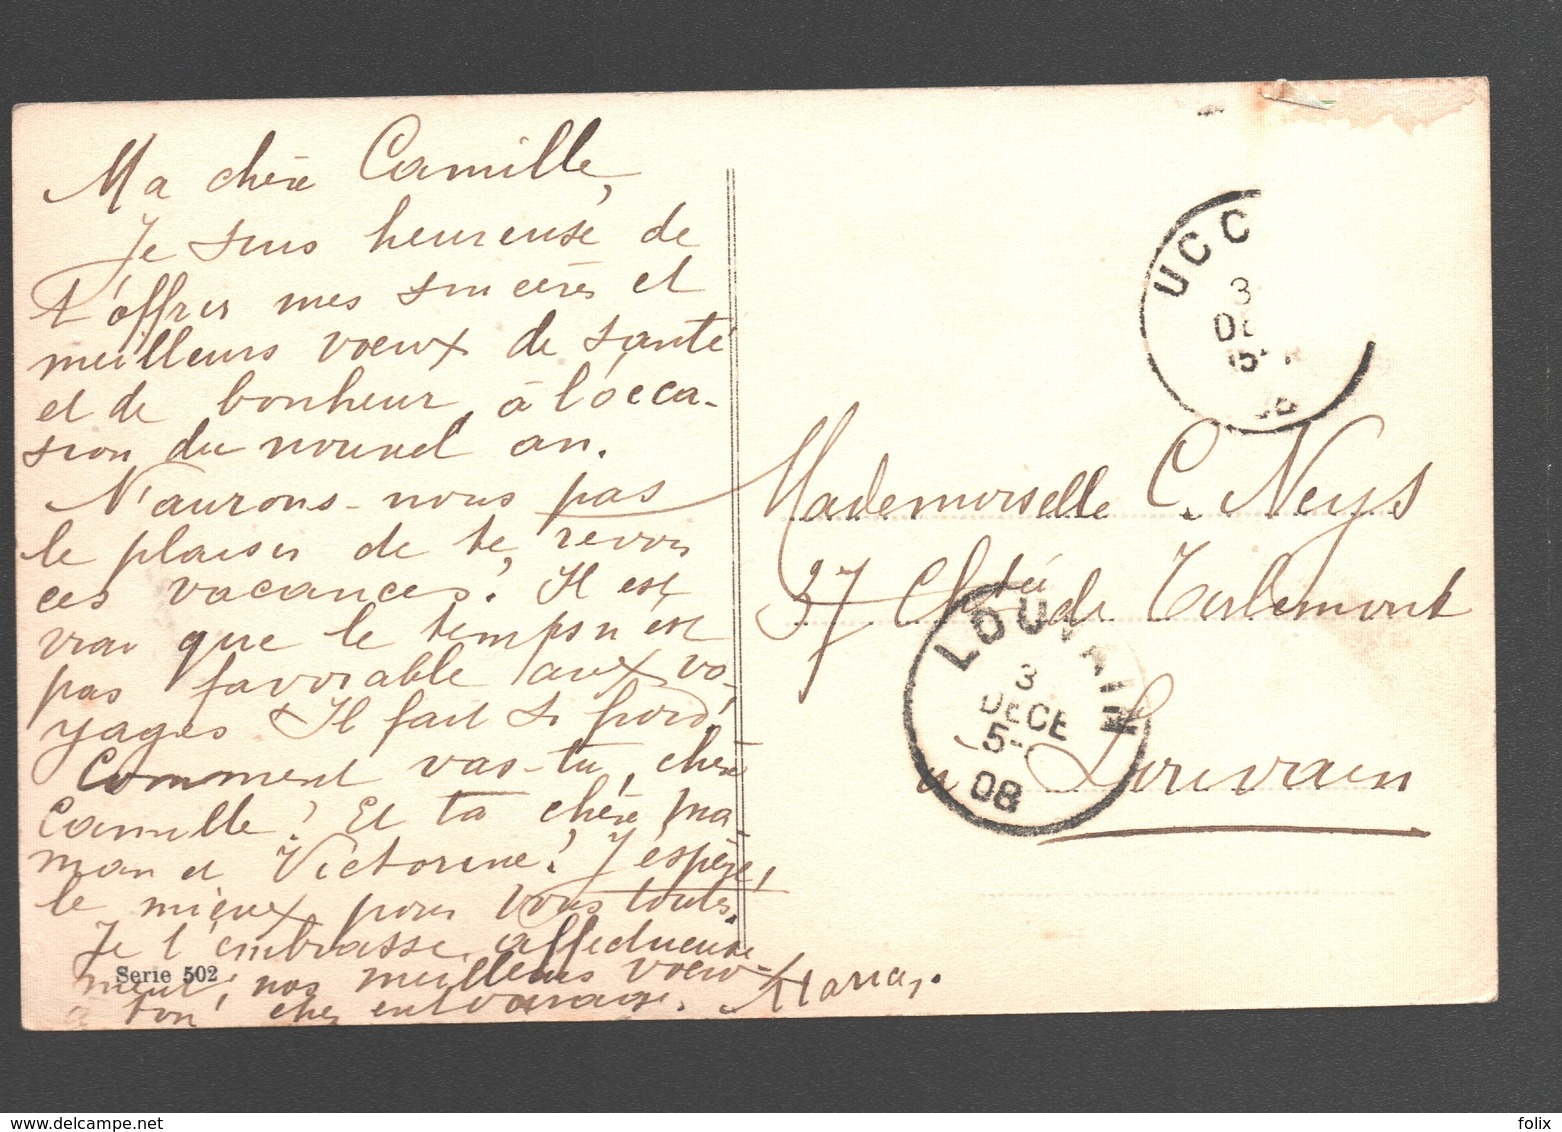 Ma chère Camille,
Je suis heureuse de
t'offrir mes sincères et
meilleurs voeux de santé
et de bonheur, à l'occa-
sion du nouvel an.
N'aurons-nous pas
le plaisir de te revoir
ces vacances? Il est
vrai que le temps n'est
pas favorable aux vo-
yages & Il fait si froid!
Comment vas-tu, chère
Camille? Et ta chère ma-
man et Victorine? J'espère,
le mieux pour vous toutes.
Je t'embrasse affectueuse
ment, nos meilleurs voeux
à ton cher entourage. Maria.
Serie 502
UCC
3
DE
5-
08
Mademoiselle C. Neys
37 Chée de Tirlemont
LOUVAIN
3
DECE
5-
08
à Louvain
delcampe.net
folix